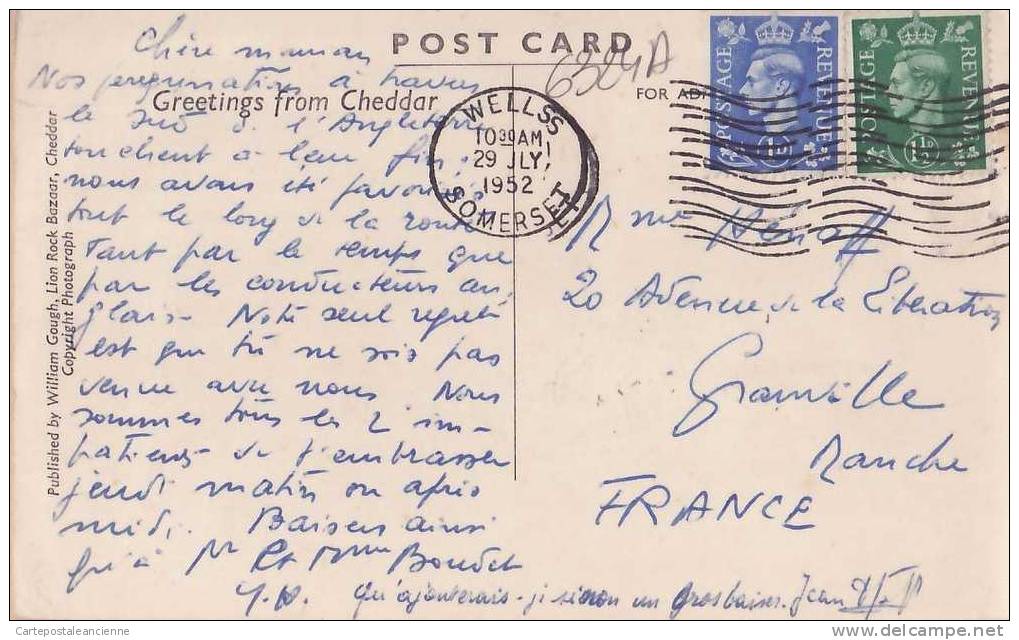 POST CARD
FOR
Greetings from Cheddar
Published by William Gough, Lion Rock Bazaar, Cheddar
Copyright Photograph
Chère maman
Nos peregrinations à travers
le sud de l'Angleterre
touchent à leur fin;
nous avons été favorisés
tout le long de la route
tant par le temps que
par les conducteurs an-
glais. Notre seul regret
est que tu ne sois pas
venue avec nous. Nous
sommes tous les 2 im-
patients de t'embrasser
jeudi matin ou après
midi. Baisers ainsi
qu'à Mr et Mme Boudet
qu'ajouterais-je sinon un gros baiser. Jean
6324A
WELLS
SOMERSET
1030 AM
29 JLY
1952
POSTAGE REVENUE
1D
POSTAGE REVENUE
1½D
Mme Hénaff
20 Avenue de la Libération
Granville
Manche
FRANCE
Cartepostaleancienne
www.delcampe.net